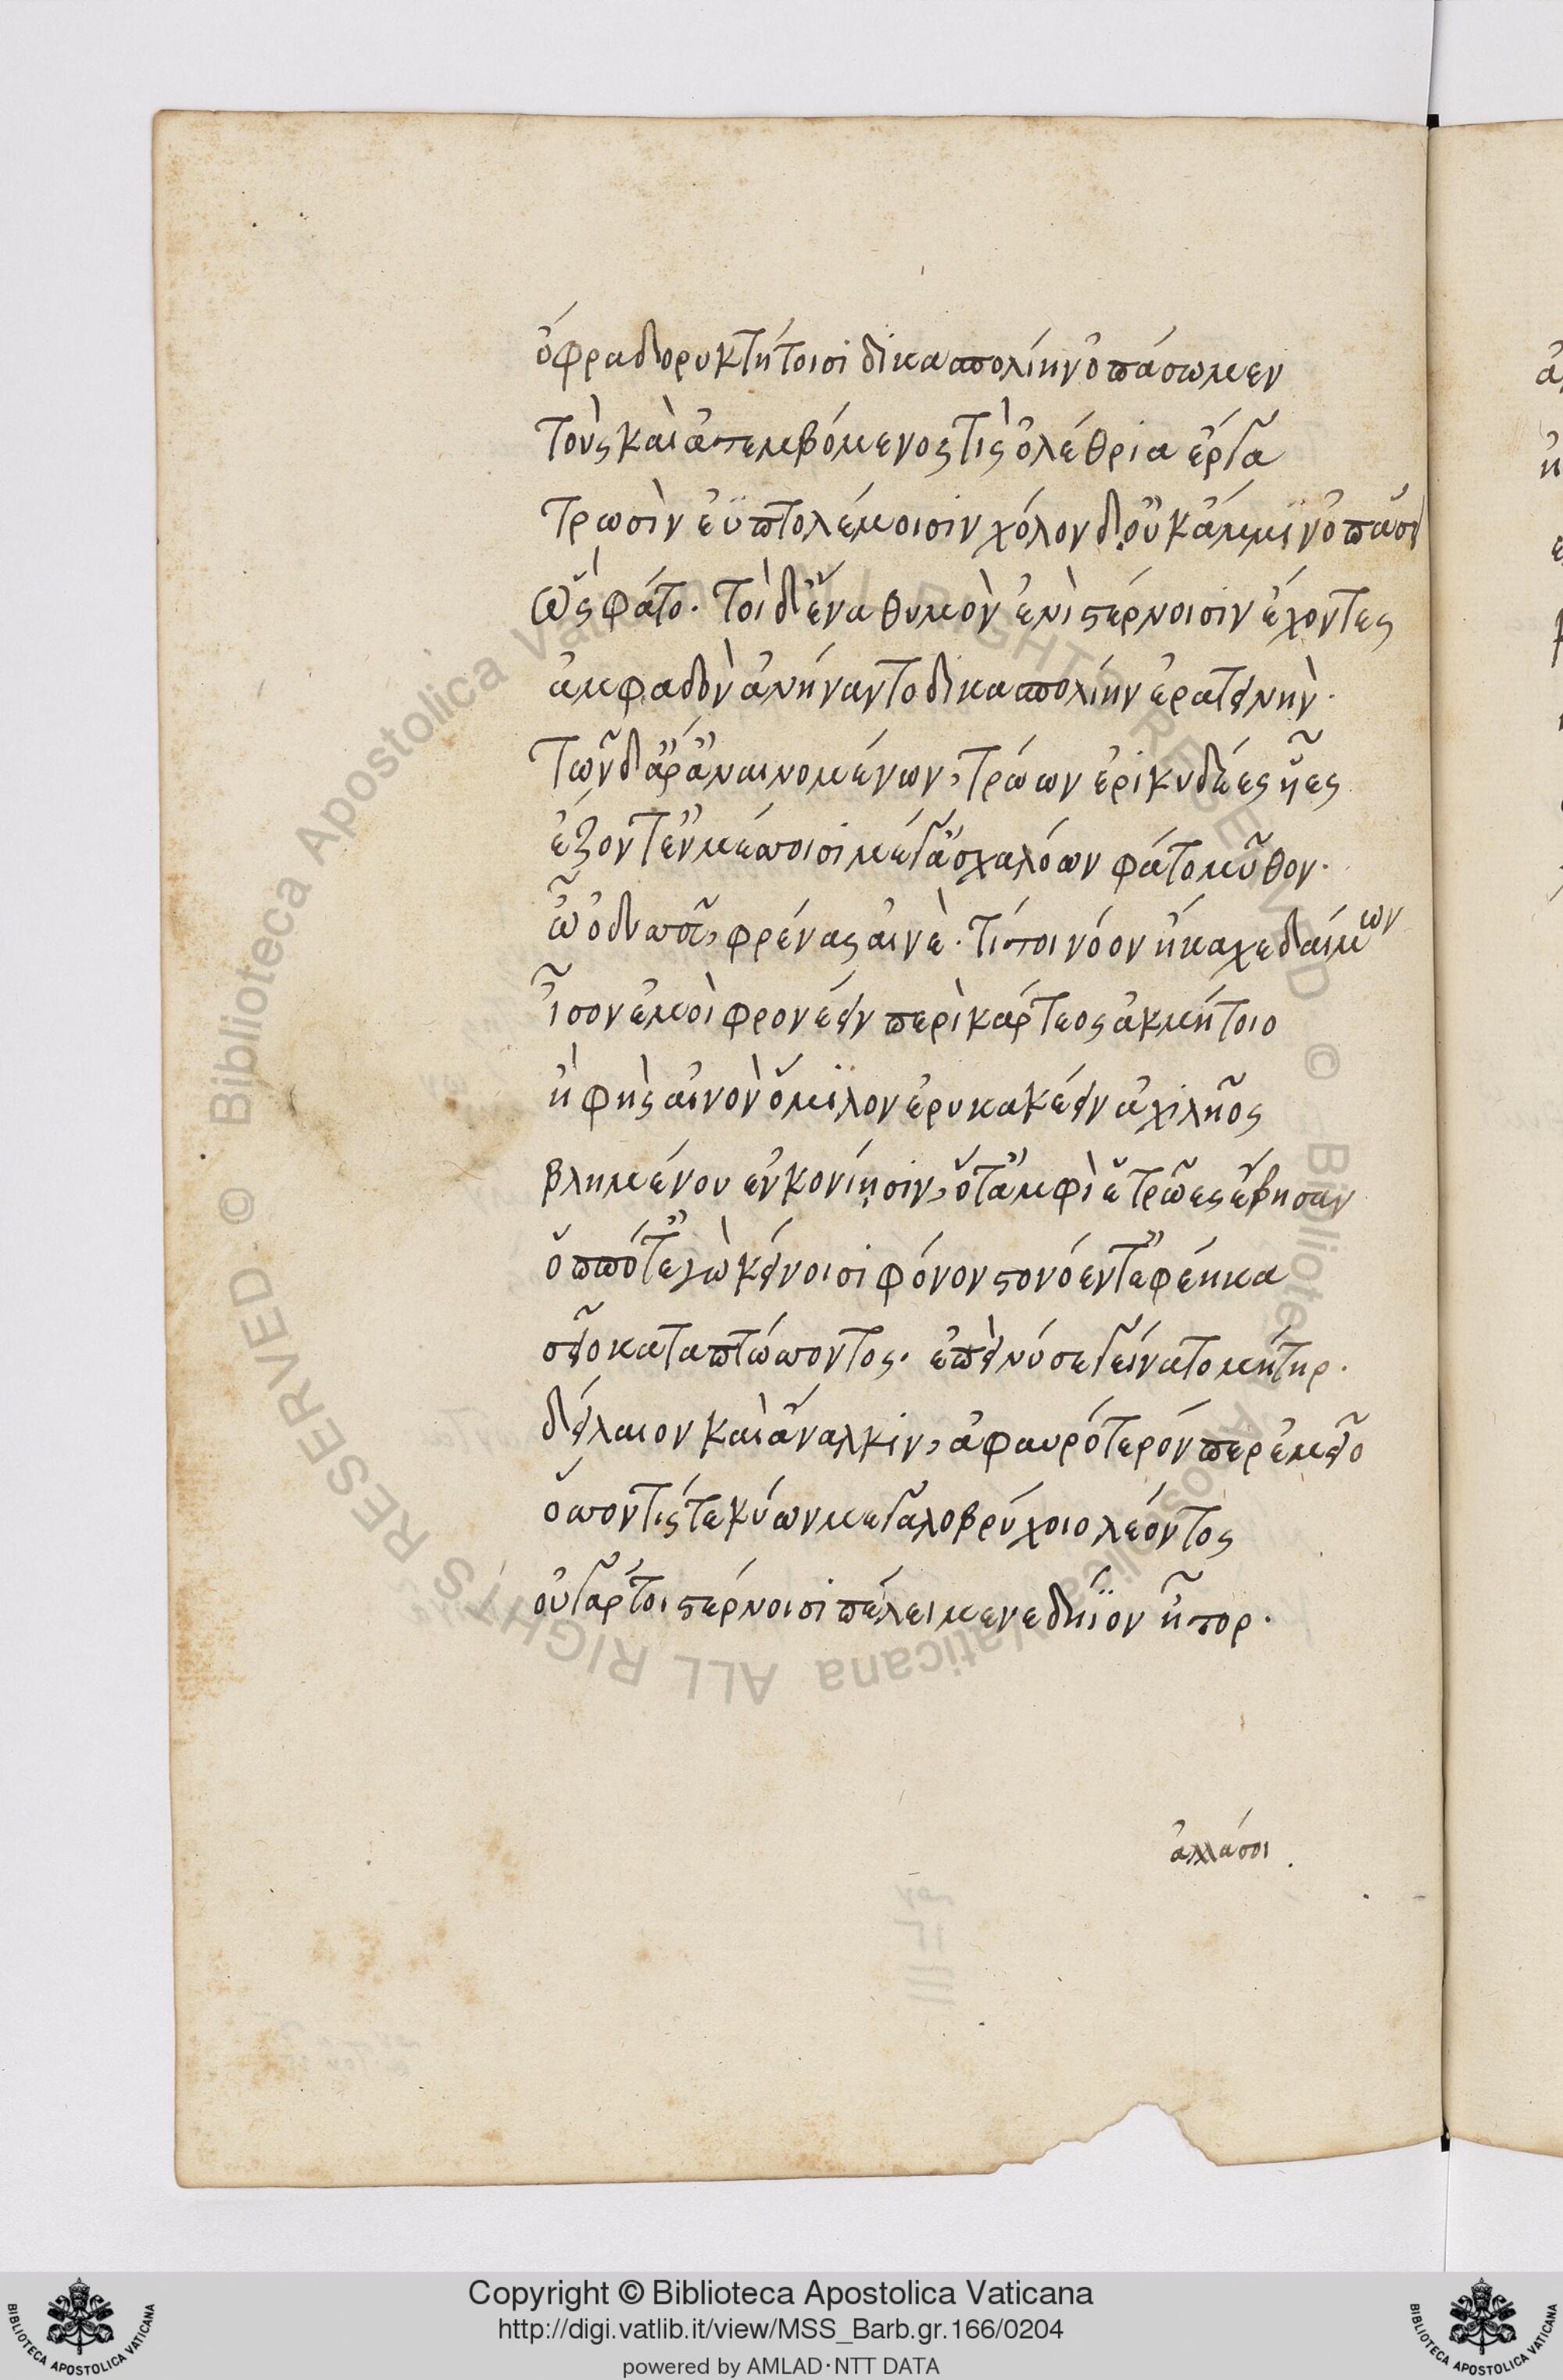 ὄφρα δορυκτήτοισι δικασπολίην ὀπάσωμεν
τοὺς καὶ ἀτεμβόμενος τις ὀλέθρια ἔργα
τρωσὶν ἐϋπτολέμοισιν χόλον δ' οὐκ ἄμμϊν ὀπάσσ
ὣς φάτο. τοὶ δ' ἕνα θυμὸν ἐνὶ στέρνοισιν ἔχοντες
ἀμφαδὸν ἀνήναντο δικασπολίην ἐρατεινὴν.
τῶν δ' ἄρ' ἀναινομένων, τρώων ἐρικυδέες ῇες
ἕζοντ' ἐν μέσσοισι μέγ' ἀσχαλόων φάτο μῦθον.
ὦ ὀδυσσεῦ, φρένας αἰνὲ. τί τοι νόον ἤκαχε δαίμων
ἶσον ἐμοὶ φρονέειν περὶ κάρτεος ἀκμήτοιο
ἢ φῂς αἰνὸν ὅμϊλον ἐρυκακέειν ἀχιλῆος
βλημένου ἐν κονίῃσιν, ὅτ' ἀμφὶ ἓ τρῶες ἔβησαν
ὁππότ' ἐγὼ κείνοισι φόνον στονόεντ' ἐφέηκα
σεῖο καταπτώσσοντος. ἐπεὶ νύ σε γείνατο μήτηρ.
δείλαιον καὶ ἄναλκιν, ἀφαυρότερόν περ ἐμεῖο
ὅσσον τίς τε κύων μεγαλοβρύχοιο λέοντος
οὐ γάρ τοι στέρνοισι πέλει μενεδήϊον ἦτορ.
ἀλλά σοι
Copyright © Biblioteca Apostolica Vaticana
http://digi.vatlib.it/view/MSS_Barb.gr.166/0204
powered by AMLAD·NTT DATA